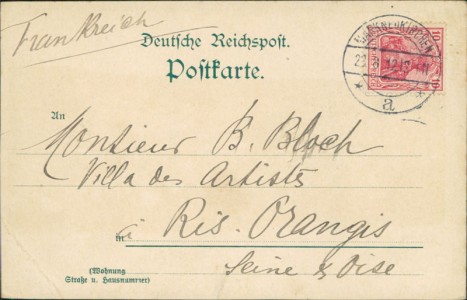 Frankreich
Deutsche Reichspost.
Postkarte.
MARKNEUKIRCHEN
a
10
10
An
Monsieur B. Bloch
Villa des Artistes
à Ris. Orangis
in
Seine & Oise
(Wohnung
Straße u. Hausnummer)